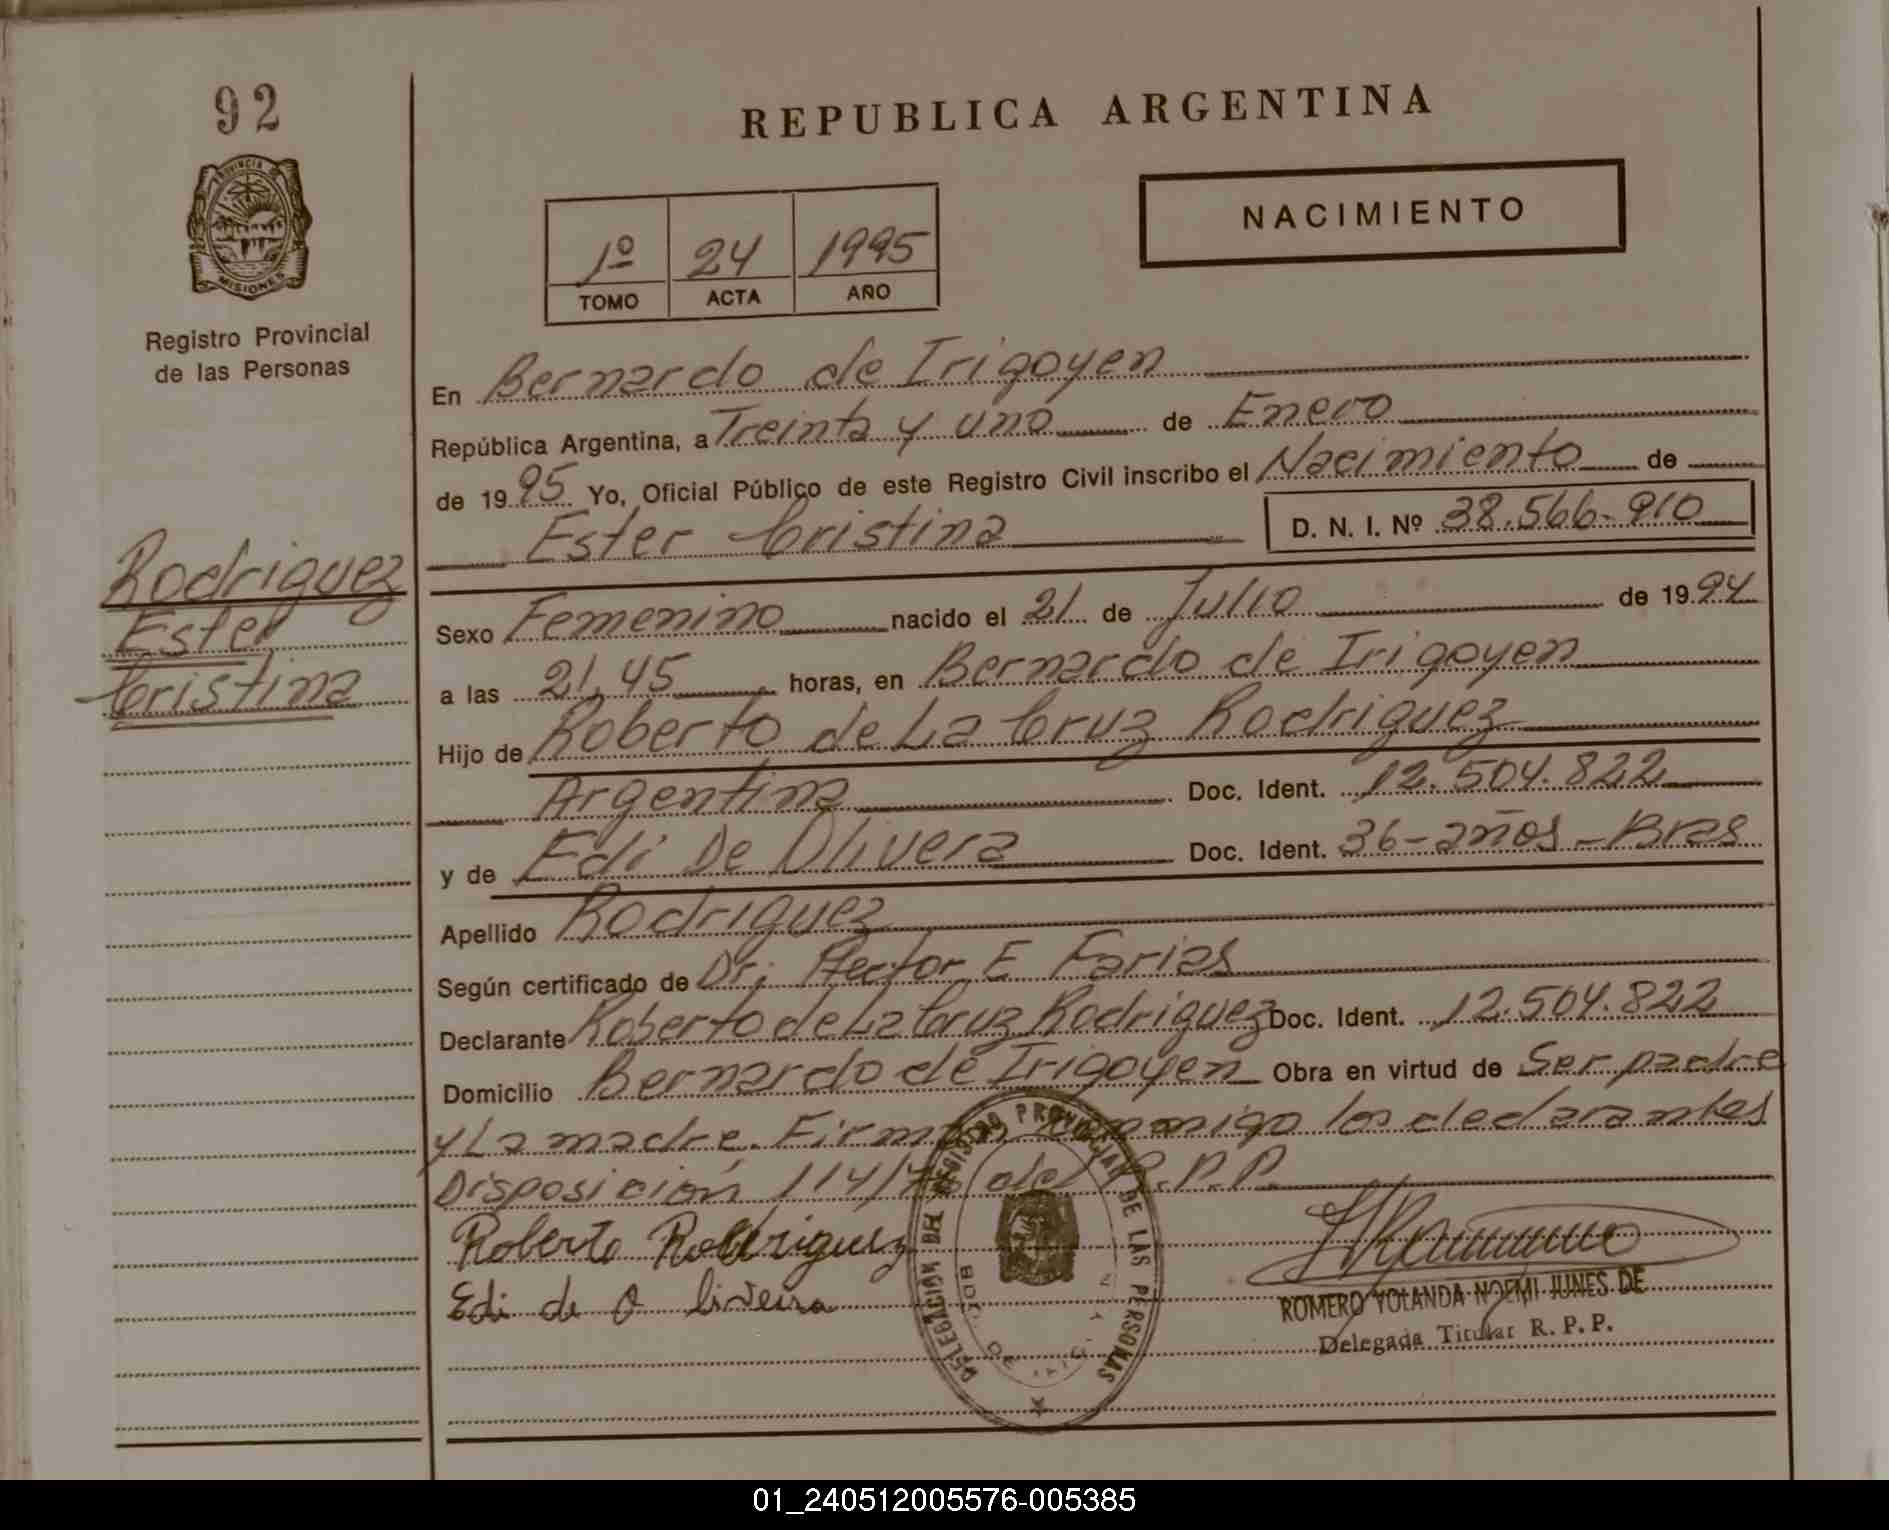 92
PROVINCIA
MISIONES
Registro Provincial
de las Personas
Rodriguez
Ester
Cristina
REPUBLICA ARGENTINA
NACIMIENTO
1º 24 1995
TOMO ACTA AÑO
En Bernardo de Irigoyen
República Argentina, a Treinta y uno de Enero
de 1995 Yo, Oficial Público de este Registro Civil inscribo el Nacimiento de
Ester Cristina D. N. I. Nº 38.566-910
Sexo Femenino nacido el 21 de Julio de 1994
a las 21,45 horas, en Bernardo de Irigoyen
Hijo de Roberto de La Cruz Rodriguez
Argentina Doc. Ident. 12.504.822
y de Edi De Olivera Doc. Ident. 36-años-Bras
Apellido Rodriguez
Según certificado de Dr; Hector E Farias
Declarante Roberto de La Cruz Rodriguez Doc. Ident. 12.504.822
Domicilio Bernardo de Irigoyen Obra en virtud de Ser padre
y La madre. Firman conmigo los declarantes
Disposición 114/ del R.P.P.
Roberto Rodriguez
Edi de Oliveira
DELEGACION DEL REGISTRO PROVINCIAL DE LAS PERSONAS
BDO. DE
ROMERO YOLANDA NOEMI JUNES DE
Delegada Titular R. P. P.
01_240512005576-005385